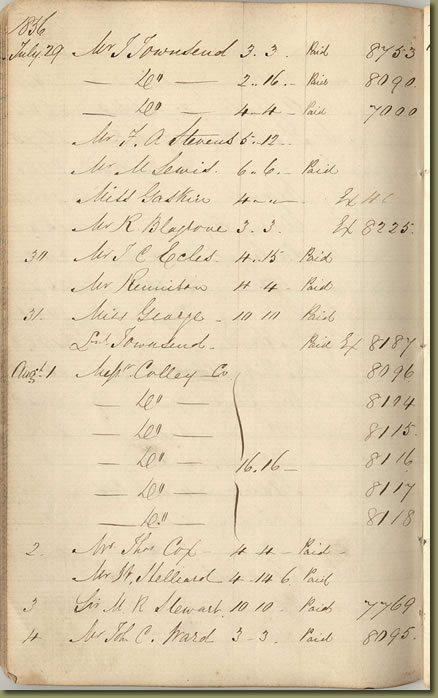 1836
July 29 Mr J Townsend 3.3. Paid 8753
— Do — 2..16.- Paid 8090
— Do — 4-4- Paid 7000
Mr F. A Stevens 5..12..
Mr M Lewis. 6..6.- Paid
Miss Gaskin 4-"- Ex
Mr R Blagrove 3.3. Ex 8225.
30 Mr J C Ecles. 4..15 Paid
Mr Rennison 4 4- Paid
31. Miss George - 10 10 Paid
Townsend - Paid Ex 8187
Augt. 1 Messrs. Colley Co 8096
— Do — 8104
— Do — 8115.
— Do — 16.16- 8116
— Do — 8117
— Do — 8118
2 Mr Thos Cox - 4 4- Paid -
Mr W. Helliard 4-14 6. Paid
3 Sir M R Stewart. 10 10. Paid 7769
4 Mr Joh C. Ward 3-3. Paid 8095.